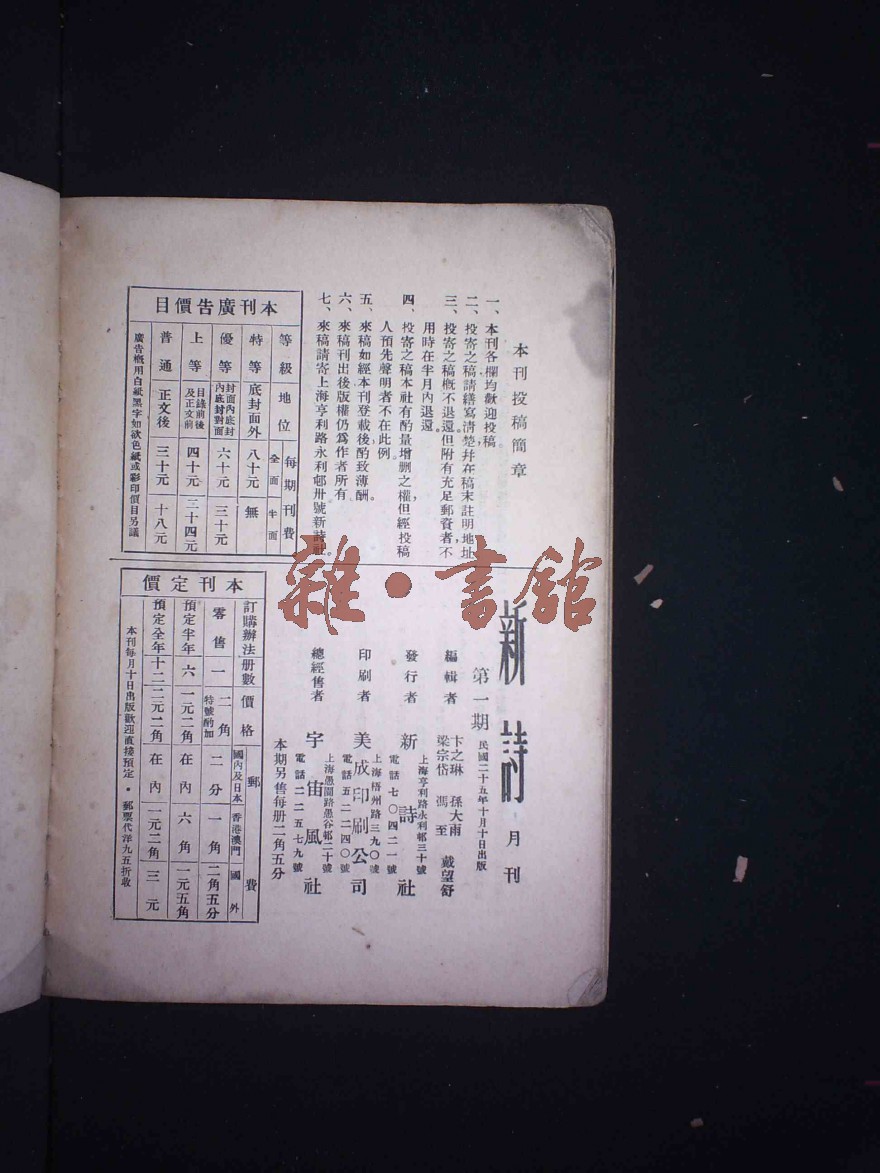 本刊投稿簡章
一、本刊各欄均歡迎投稿。
二、投寄之稿請繕寫清楚，幷在稿末註明地址。
三、投寄之稿概不退還，但附有充足郵資者不
用時在半月內退還。
四、投寄之稿本社有酌量增删之權，但經投稿
人預先聲明者不在此例。
五、來稿如經本刊登載後酌致薄酬。
六、來稿刊出後版權仍爲作者所有。
七、來稿請寄上海亨利路永利邨卅號新詩社。
本刊廣告價目
等級 地位 每期刊費 全面 半面
特等 底封面外 八十元 無
優等 封面內底封內底封對面 六十元 三十元
上等 目錄前後及正文前 四十元 二十四元
普通 正文後 三十元 十八元
廣告概用白紙黑字如欲色紙或彩印價目另議
雜·書館
新詩月刊
第一期 民國二十五年十月十日出版
編輯者 卞之琳 孫大雨 梁宗岱 馮至 戴望舒
發行者 新詩社
上海亨利路永利邨三十號
電話七〇四二一號
印刷者 美成印刷公司
上海梧州路三九〇號
電話五二二四〇號
總經售者 宇宙風社
上海愚園路愚谷邨二十號
電話二二五七九號
本期另售每册二角五分
本刊定價
訂購辦法 册數 價格 郵費 國內及日本 香港澳門 國外
零售 一 二角 特號酌加 二分 一角 二角五分
預定半年 六 一元二角 在內 六角 一元五角
預定全年 十二 二元二角 在內 一元二角 三元
本刊每月十日出版歡迎直接預定·郵票代洋九五折收